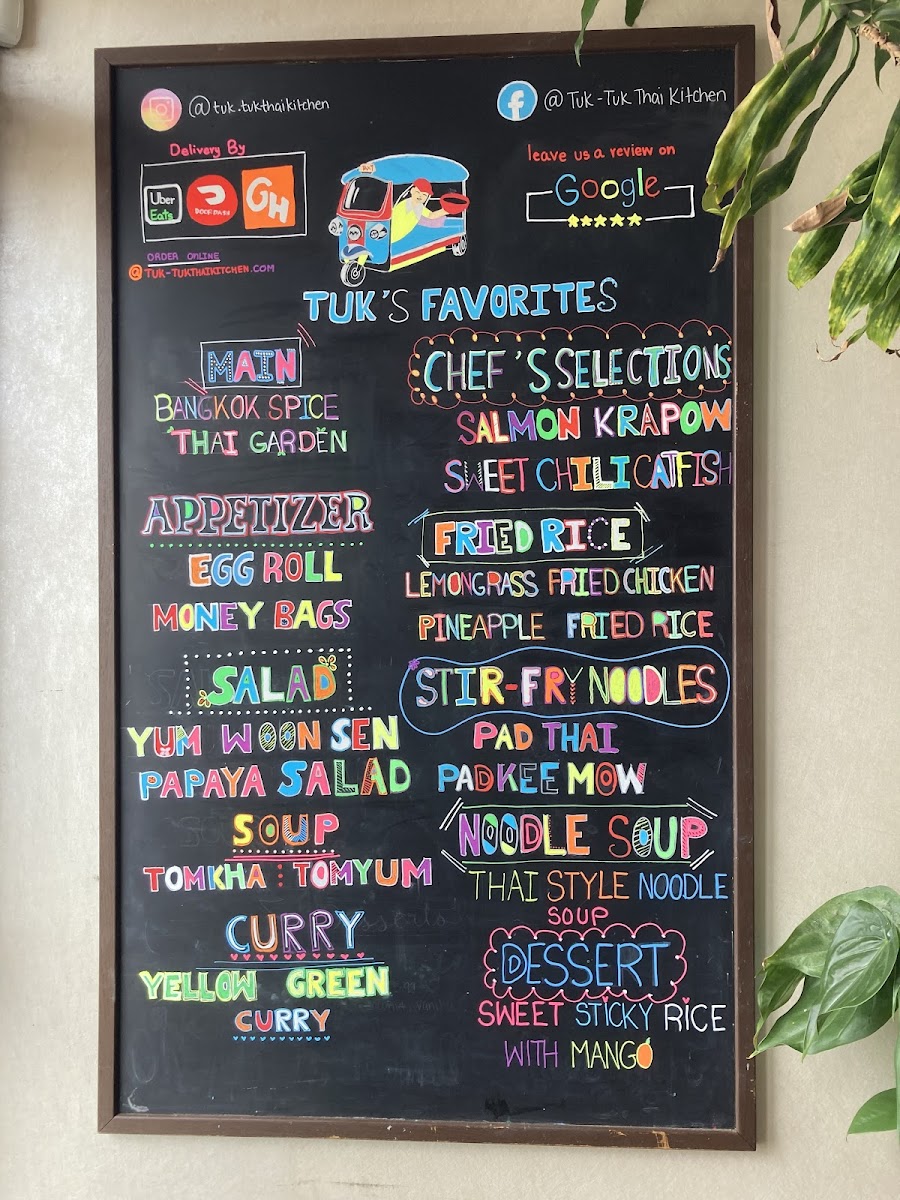 @tuk.tukthaikitchen
@ Tuk-Tuk Thai Kitchen
Delivery By
Uber
Eats
DOORDASH
GH
leave us a review on
Google
ORDER ONLINE
@TUK-TUKTHAIKITCHEN.COM
TUK'S FAVORITES
MAIN
BANGKOK SPICE
THAI GARDEN
APPETIZER
EGG ROLL
MONEY BAGS
SALAD
YUM WOON SEN
PAPAYA SALAD
SOUP
TOMKHA : TOMYUM
CURRY
YELLOW GREEN
CURRY
CHEF'S SELECTIONS
SALMON KRAPOW
SWEET CHILI CATFISH
FRIED RICE
LEMONGRASS FRIED CHICKEN
PINEAPPLE FRIED RICE
STIR-FRY NOODLES
PAD THAI
PADKEE MOW
NOODLE SOUP
THAI STYLE NOODLE
SOUP
DESSERT
SWEET STICKY RICE
WITH MANGO